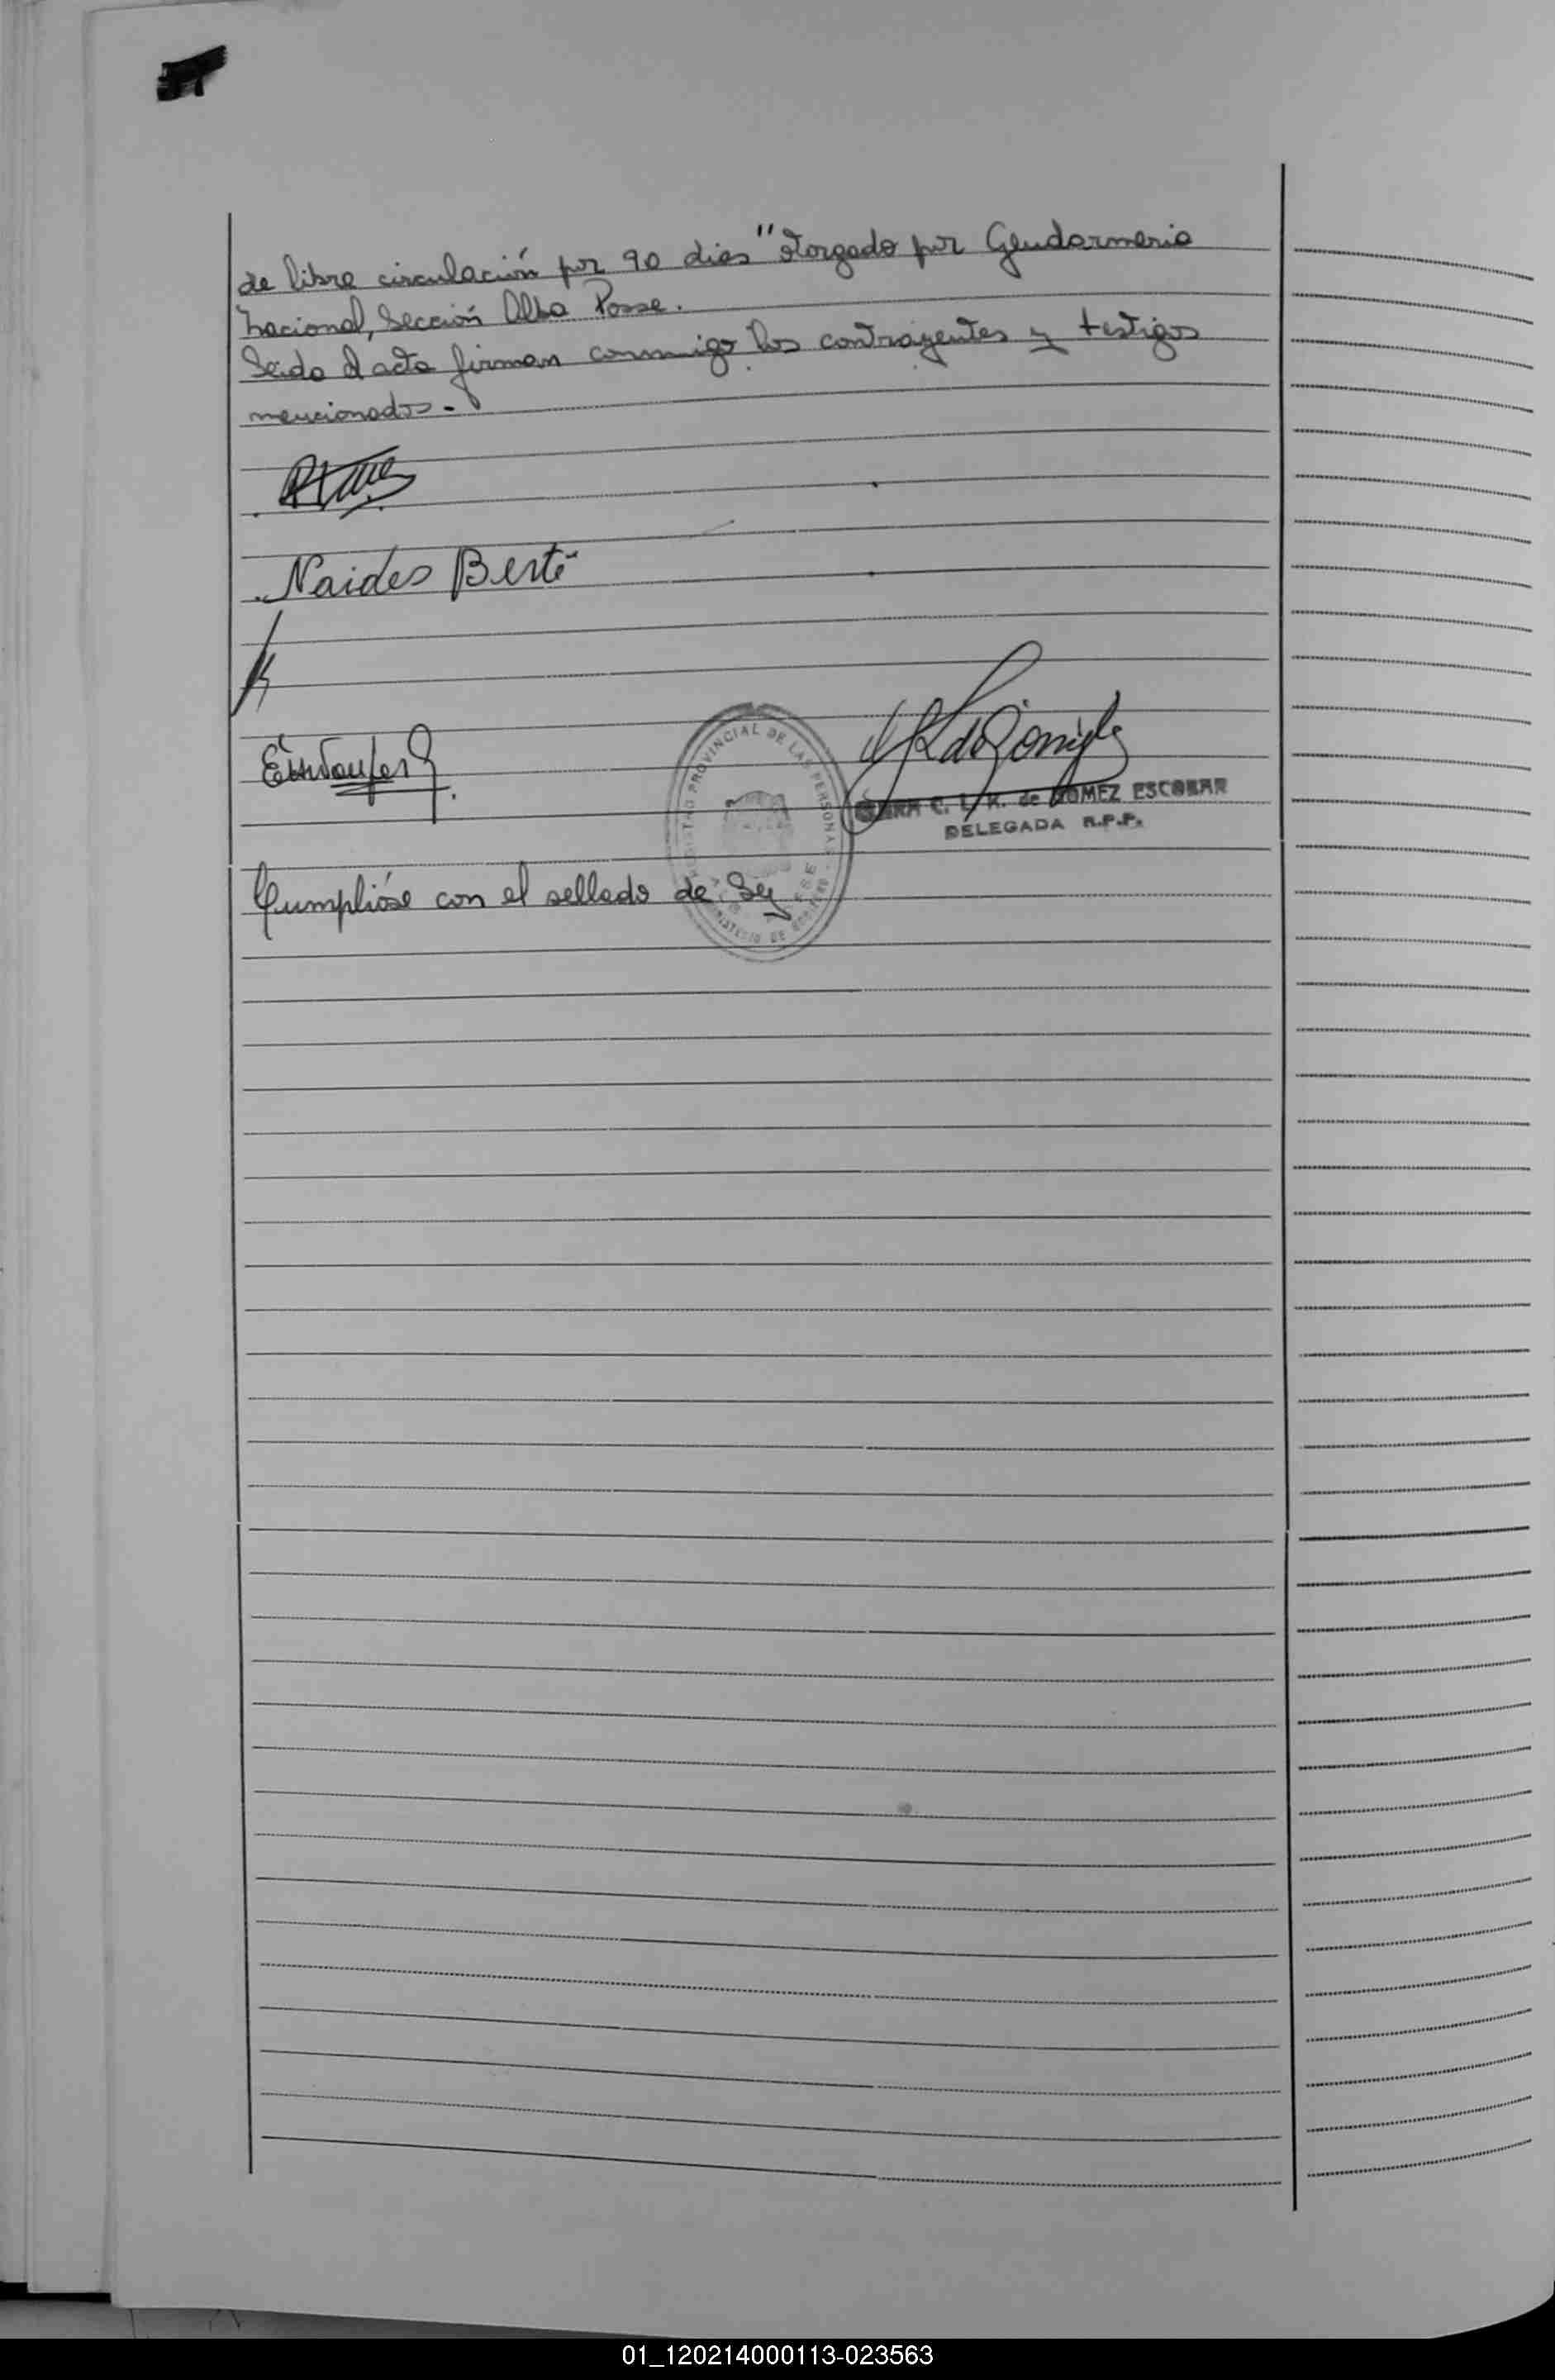 de libre circulación por 90 dias" otorgado por Gendarmeria
Nacional, Sección Alba Posse.
Leida el acta firman conmigo los contrayentes y testigos
mencionados.-
Naides Berté
REGISTRO PROVINCIAL DE LAS PERSONAS
C. L. K. de GOMEZ ESCOBAR
DELEGADA R.P.P.
Cumplióse con el sellado de Ley
01_120214000113-023563